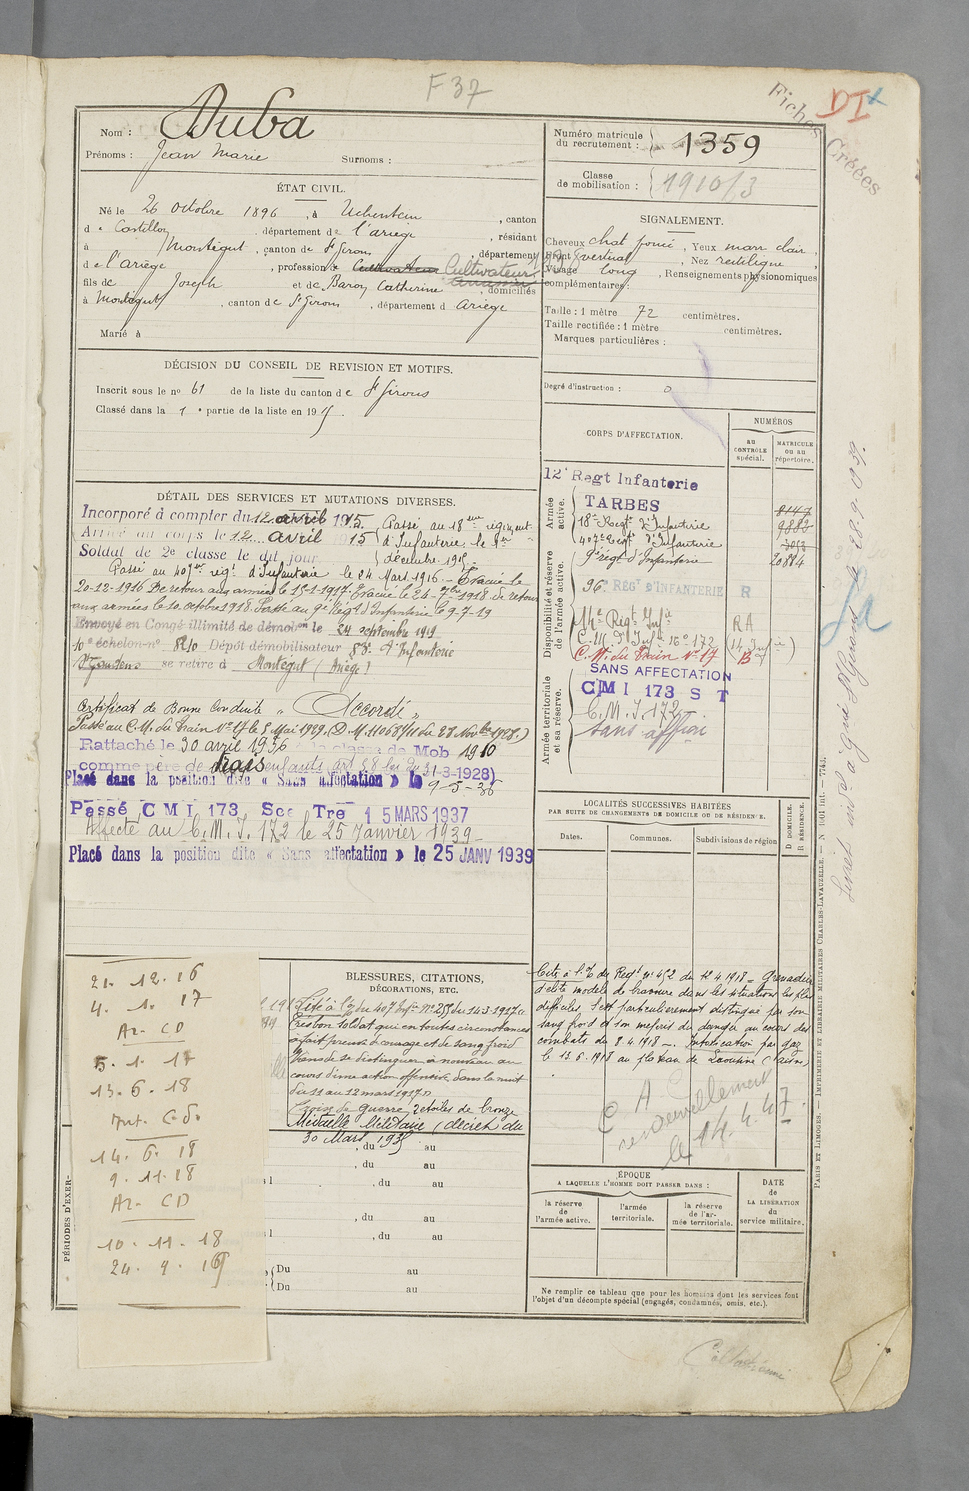 F 37
DI x
Fiches Créées
Nom : Duba
Prénoms : Jean Marie Surnoms :
Numéro matricule du recrutement : 1359
Classe de mobilisation : 1910/3
ÉTAT CIVIL.
Né le 26 octobre 1896, à Uchentein, canton
de Castillon, département de l'ariège, résidant
à Montégut, canton de St Girons, département
de l'ariège, profession de Cultivateur Cultivateur
fils de Joseph et de Baron Catherine, domiciliés
à Montégut, canton de St Girons, département d Ariège
Marié à
SIGNALEMENT.
Cheveux chat foncé, Yeux marr clair,
Front vertical, Nez rectiligne,
Visage long, Renseignements physionomiques
complémentaires :
Taille : 1 mètre 72 centimètres.
Taille rectifiée : 1 mètre centimètres.
Marques particulières :
Degré d'instruction : 0
DÉCISION DU CONSEIL DE REVISION ET MOTIFS.
Inscrit sous le no 61 de la liste du canton de St Girons
Classé dans la 1e partie de la liste en 1915.
DÉTAIL DES SERVICES ET MUTATIONS DIVERSES.
Incorporé à compter du 12 avril 1915.
Arrivé au corps le 12 avril 1915
Soldat de 2e classe le dit jour
Passé au 18eme régiment
d'Infanterie le 1er
décembre 1915
Passé au 407e régt d'Infanterie le 24 Mars 1916. Évacué le
20-12-1916 De retour aux armées le 15-1-1917. Évacué le 24-7-1918 de retour
aux armées le 10 octobre 1918. Passé au 9e Régt d'Infanterie le 9-7-19
Envoyé en Congé illimité de démobon le 24 septembre 1919
10e échelon-no 8210 Dépôt démobilisateur 88e d'Infanterie
St Gaudens se retire à Montégut (Ariège)
Certificat de Bonne Conduite "Accordé"
Passé au C.M. du Train No 17 le 5 Mai 1929. (D.M. 11068/11 du 28 Novbre 1928.)
Rattaché le 30 avril 1936 à la classe de Mob 1910
comme père de trois enfants (art 58 loi du 31-3-1928)
Placé dans la position dite « Sans affectation » le 9-5-36
Passé CMI 173 Sec Tre 15 MARS 1937
Affecté au C.M.I. 172 le 25 Janvier 1939
Placé dans la position dite « Sans affectation » le 25 JANV 1939
CORPS D'AFFECTATION.
NUMÉROS
au CONTRÔLE spécial.
MATRICULE ou au répertoire.
Armée active.
12e Regt Infanterie
TARBES 8147
18e Regt d'Infanterie 9882
407e Regt d'Infanterie 3053
9e régt d'Infanterie 20884
Disponibilité et réserve de l'armée active.
96e RÉGt D'INFANTERIE R
14e Regt Infie RA
C.M. d'Infie No 172 (14 Infie)
C.M. du Train No 17 B
Armée territoriale et sa réserve.
SANS AFFECTATION
CMI 173 S T
C.M.I. 172
sans affon
LOCALITÉS SUCCESSIVES HABITÉES
PAR SUITE DE CHANGEMENTS DE DOMICILE OU DE RÉSIDENCE.
Dates. Communes. Subdivisions de région
D DOMICILE.
R RÉSIDENCE.
21. 12. 16
4. 1. 17
Az - CD
5. 1. 17
13. 6. 18
Int. C. D.
14. 6. 18
9. 11. 18
Az - CD
10. 11. 18
24. 9. 19
PÉRIODES D'EXER-
BLESSURES, CITATIONS,
DÉCORATIONS, ETC.
Cité à l'O du 407 Infie No 255 du 14-3-1917
Très bon soldat qui en toutes circonstances
a fait preuve de courage et de sang froid
Vient de se distinguer à nouveau au
cours d'une action offensive dans la nuit
du 11 au 12 mars 1917
Croix de guerre, 2 étoiles de bronze
Médaille Militaire (décret du
30 Mars 1935
, du au
, du au
, du au
, du au
, du au
Du au
Du au
Cité à l'O du Regt No 452 du 12 4 1918 = Grenadier
d'élite modèle de bravoure dans les situations les plus
difficiles. S'est particulièrement distingué par son
sang froid et son mépris du danger au cours des
combats du 8.4.1918 -. Intoxication par gaz
le 13 6 1918 au plateau de (Aisne)
C A
renouvellement
le 14.4.47
ÉPOQUE
A LAQUELLE L'HOMME DOIT PASSER DANS :
la réserve de l'armée active.
l'armée territoriale.
la réserve de l'armée territoriale.
DATE DE LA LIBÉRATION du service militaire.
Ne remplir ce tableau que pour les hommes dont les services font
l'objet d'un décompte spécial (engagés, condamnés, omis, etc.).
PARIS ET LIMOGES. — IMPRIMERIE ET LIBRAIRIE MILITAIRES CHARLES-LAVAUZELLE.
28.9.1939.